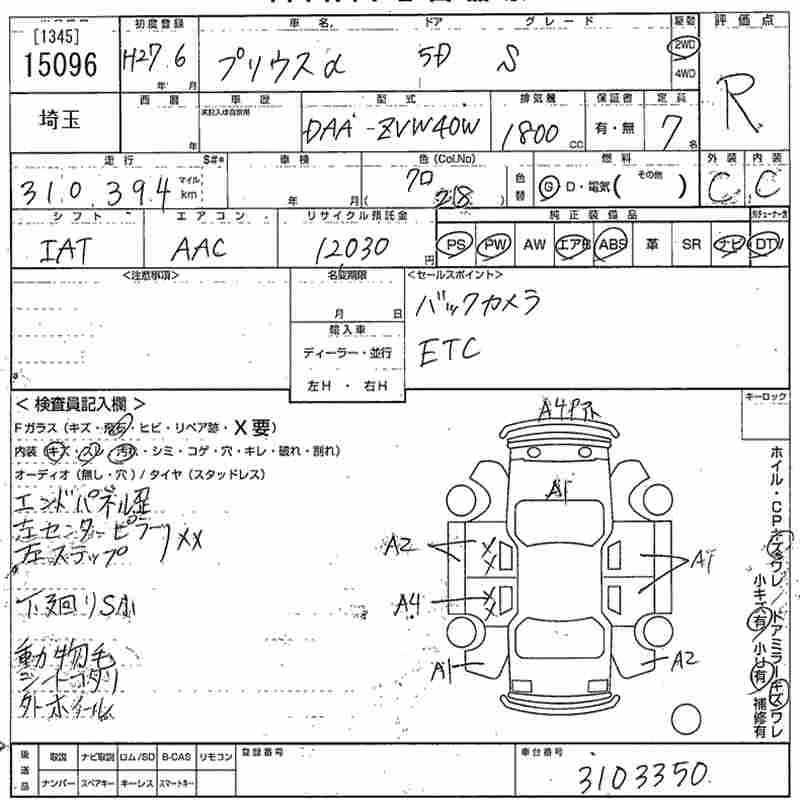 [1345]
15096
初度登録
H27.6
年 月
車名
プリウスα
ドア
5D
グレード
S
駆動
2WD
4WD
評価点
R
埼玉
西暦
年
車歴
未記入は自家用
型式
DAA-ZVW40W
排気量
1800 CC
保証書
有・無
定員
7名
走行
310,394
マイル
km
S#*
車検
年 月
色(Col.No)
クロ
( 218 )
色替
燃料
G D・電気( その他 )
外装
C
内装
C
シフト
IAT
エアコン
AAC
リサイクル預託金
12030円
純正装備品
PS PW AW エアB ABS 革 SR ナビ DTV
<注意事項>
名変期限
月 日
輸入車
ディーラー・並行
左H ・ 右H
<セールスポイント>
バックカメラ
ETC
キーロック
<検査員記入欄>
Fガラス(キズ・飛石・ヒビ・リペア跡・X要)
内装(キズ・スレ・汚れ・シミ・コゲ・穴・キレ・破れ・割れ)
オーディオ(無し・穴)/タイヤ(スタッドレス)
エンドパネル歪
左センターピラー
左ステップ
XX
下廻りS小
動物毛
外ホイール
A1
XX
A2
XX
A4
A1
A1
A2
ホイル・CPキズワレ/ドアミラーキズワレ
小キズ有 小U有 補修有
後送品
取説 ナビ取説 ロム/SD B-CAS リモコン
ナンバー スペアキー キーレス スマートキー
登録番号
車台番号
3103350